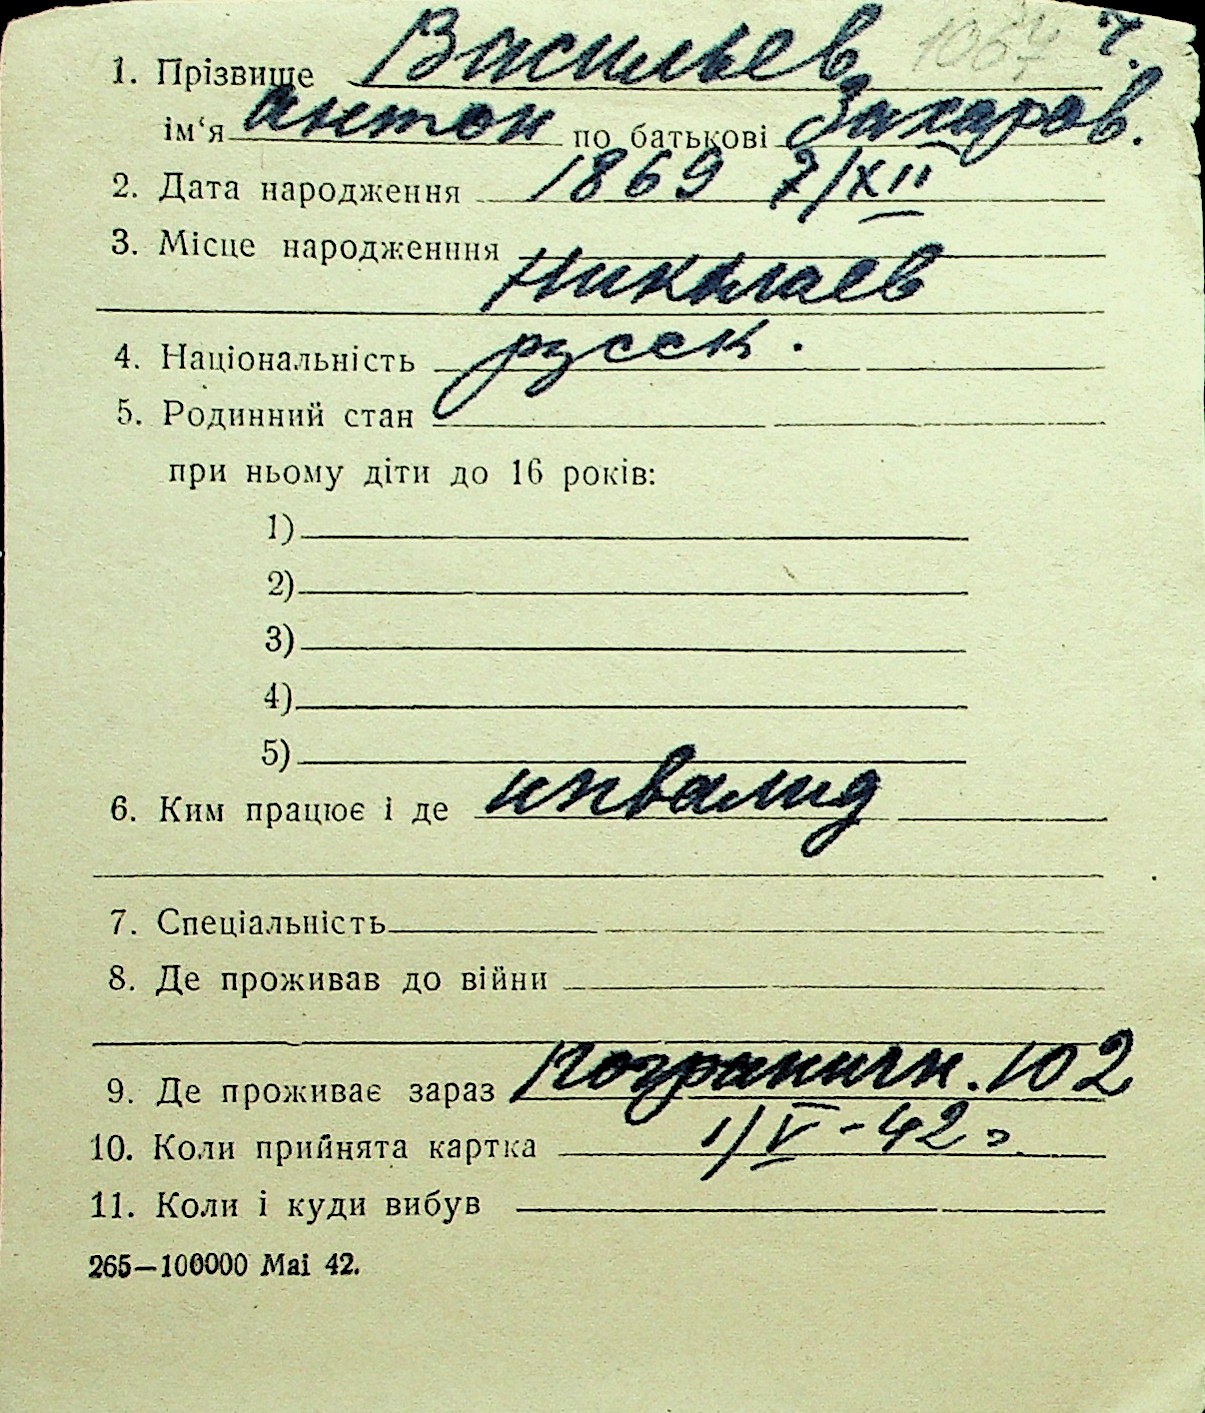 1. Прізвище Васильев 1067 ч.
ім‘я Антон по батькові Захаров.
2. Дата народження 1869 7/XII
3. Місце народженння
Николаев
4. Національність русск.
5. Родинний стан
при ньому діти до 16 років:
1)
2)
3)
4)
5)
6. Ким працює і де инвалид
7. Спеціальність
8. Де проживав до війни
9. Де проживає зараз Пограничн. 102
10. Коли прийнята картка 1/V-42 г.
11. Коли і куди вибув
265—100000 Mai 42.